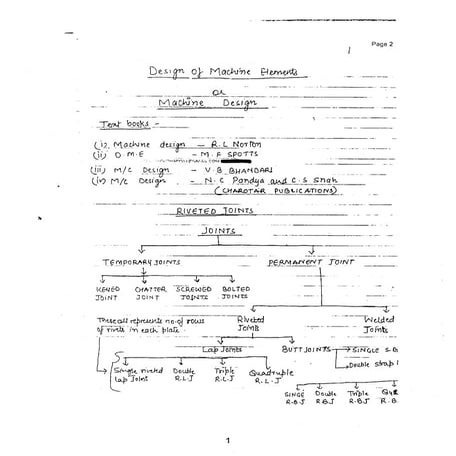 Page 2
1
Design of Machine Elements
or
Machine Design
Text books -
(i). Machine design - R.L Norton
(ii) D.M.E - M.F SPOTTS
(iii) M/C Design - V.B. BHANDARI
(iv) M/C Design - N.C Pandya and C.S Shah
(CHAROTAR PUBLICATIONS)
RIVETED JOINTS
JOINTS
TEMPORARY JOINTS PERMANENT JOINT
KEYED JOINT CHATTER JOINT SCREWED JOINTS BOLTED JOINTS
These all represents no. of rows of rivets in each plate.
Riveted Joints Welded Joints
Lap Joints BUTT JOINTS SINGLE S.B
Double strap
Single riveted lap joint Double R.L.J Triple R.L.J Quadruple R.L.J
SINGE R.B.J Double R.B.J Triple R.B.J R.B.
1